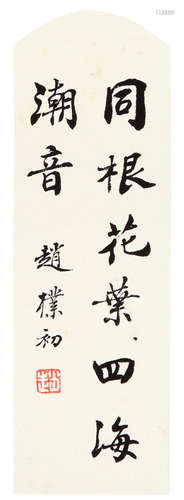 同根花葉四海
潮音
趙樸初